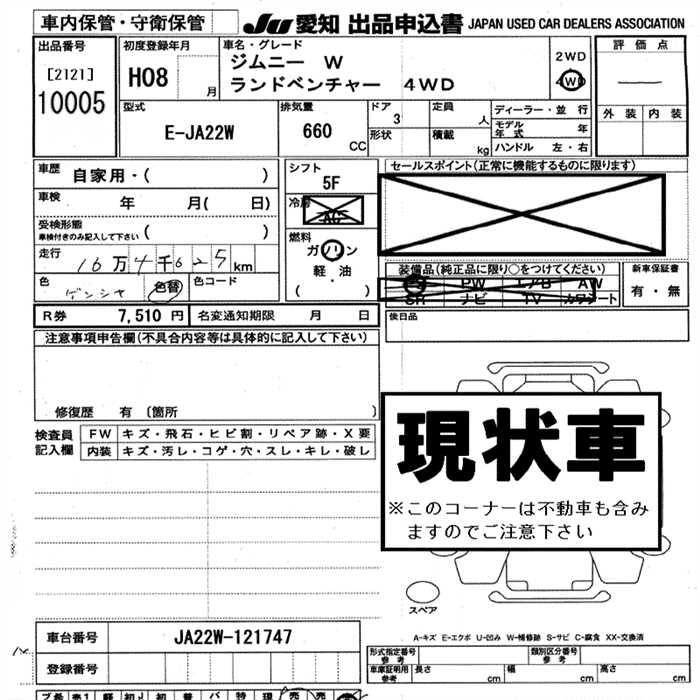 車内保管・守衛保管
JU 愛知 出品申込書 JAPAN USED CAR DEALERS ASSOCIATION
出品番号
[2121]
10005
初度登録年月
H08 月
車名・グレード
ジムニー W
ランドベンチャー 4WD
2WD
4WD
評価点
外装 内装
型式
E-JA22W
排気量
660 CC
ドア 3
形状
定員 人
積載 kg
ディーラー・並行
モデル年式 年
ハンドル 左・右
車歴 自家用・( )
車検 年 月( 日)
受検形態
車検付きのみ記入して下さい ( )
走行 16万4千625km
色 ゲンシャ 色替 色コード
シフト
5F
冷房
AC
燃料
ガソリン
軽・油
( )
セールスポイント(正常に機能するものに限ります)
装備品(純正品に限り○をつけてください)
PS PW エアB AW
SR ナビ TV カワシート
新車保証書
有・無
後日品
R券 7,510 円 名変通知期限 月 日
注意事項申告欄(不具合内容等は具体的に記入して下さい)
修復歴 有 〔箇所 〕
検査員記入欄
FW キズ・飛石・ヒビ割・リペア跡・X要
内装 キズ・汚レ・コゲ・穴・スレ・キレ・破レ
現状車
※このコーナーは不動車も含み
ますのでご注意下さい
スペア
A-キズ E-エクボ U-凹み W-補修跡 S-サビ C-腐食 XX-交換済
車台番号 JA22W-121747
登録番号
形式指定番号 参考
類別区分番号 参考
車庫証明用 参考 長さ 幅 高さ